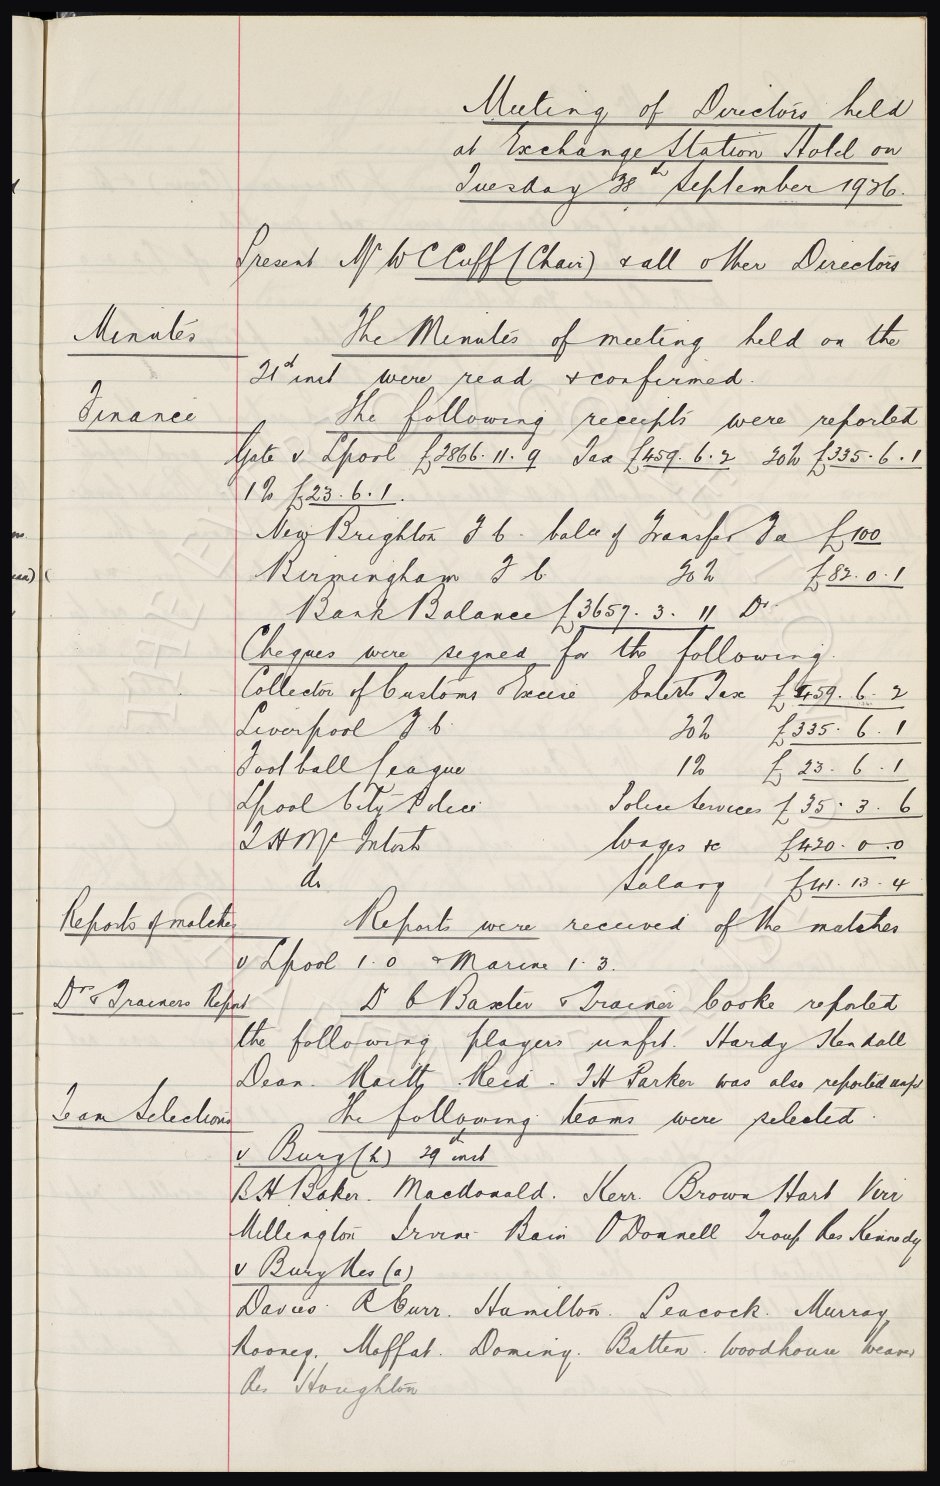 Meeting of Directors held
at Exchange Station Hotel on
Tuesday 28th September 1926.
Present Mr W C Cuff (Chair) & all other Directors
Minutes The Minutes of meeting held on the
21st inst were read & confirmed.
Finance The following receipts were reported
Gate v Lpool £2866. 11. 9 Tax £459. 6. 2 20% £335. 6. 1
1% £23. 6. 1.
New Brighton F C. balce of Transfer Fee £100
Birmingham F C 20% £82. 0. 1
Bank Balance £3657. 3. 11 Dr.
Cheques were signed for the following.
Collector of Customs & Excise Enterts Tax £459. 6. 2
Liverpool F C. 20% £335. 6. 1
Football League 1% £23. 6. 1
Lpool City Police Police Services £35. 3. 6
T H McIntosh Wages &c £420. 0. 0
do Salary £41. 13. 4
Reports of matches Reports were received of the matches
v Lpool 1. 0 & Marine 1. 3.
Drs & Trainers Report Dr C Baxter & Trainer Cooke reported
the following players unfit. Hardy Kendall
Dean. Raitt. Reid. J H Parker was also reported
Team Selections The following teams were selected.
v Bury (h) 29th inst
B H Baker. Macdonald. Kerr. Brown Hart Virr
Millington Irvine Bain O'Donnell Troup Res Kennedy
v Bury Res (a)
Davies. R Curr. Hamilton. Peacock. Murray
Rooney. Moffat. Dominy. Batten. Woodhouse Weaver
Res Houghton